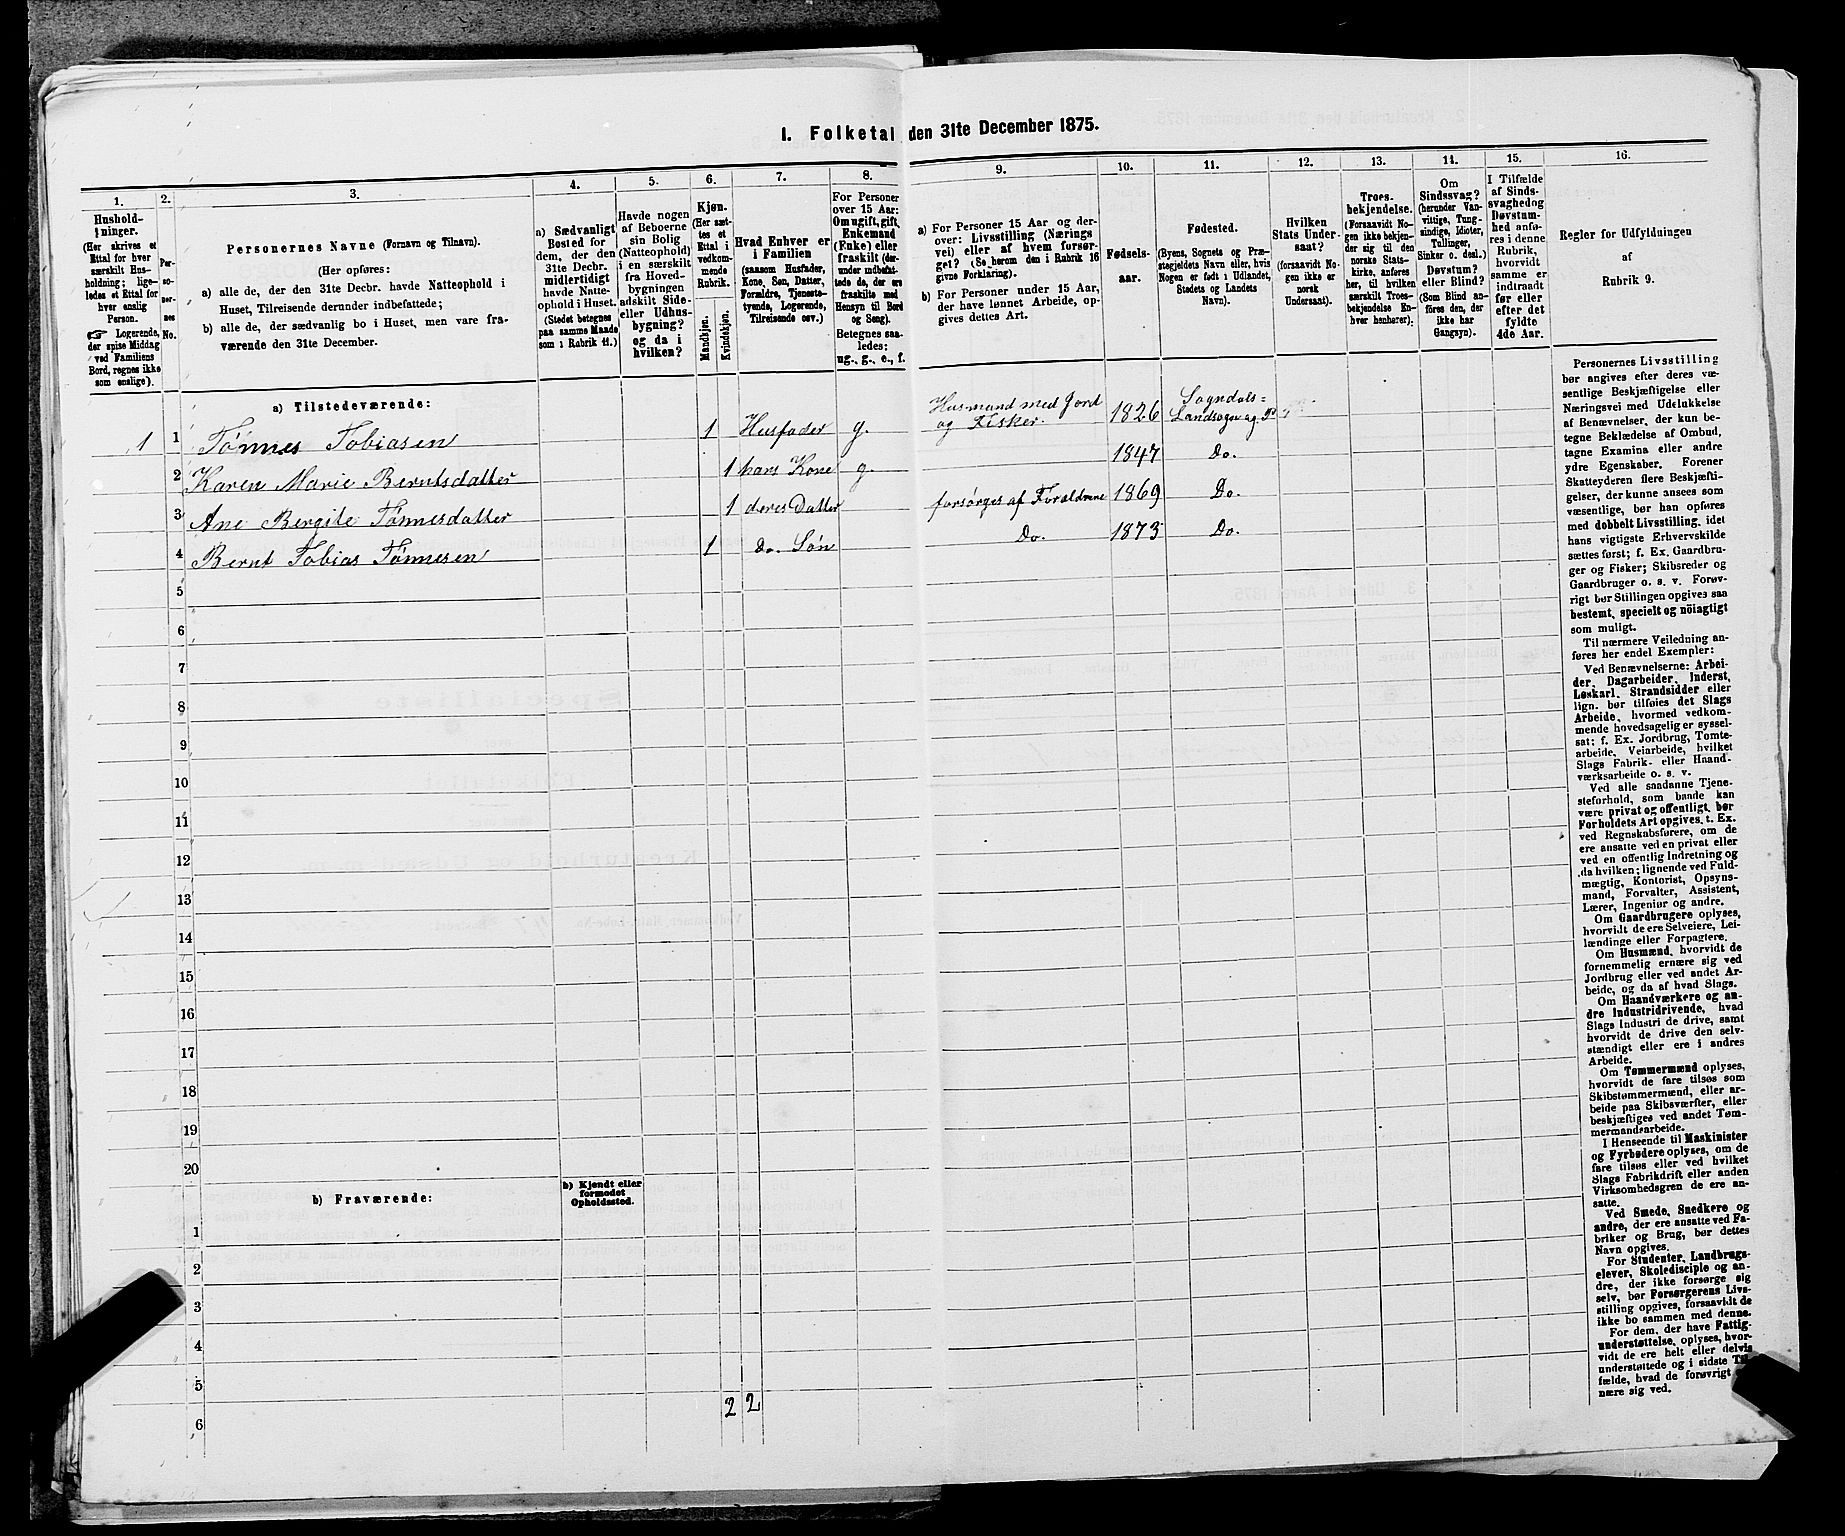 I. Folketal den 31te December 1875.
1.
Hushold-
ninger.
(Her skrives et
Ettal for hver
særskilt Hus-
holdning; lige-
ledes et Ettal for
hver enslig
Person.
☞ Logerende,
der spise Middag
ved Familiens
Bord, regnes ikke
som enslige).
2.
Per-
so-
ner-
nes
No.
3.
Personernes Navne (Fornavn og Tilnavn).
(Her opføres:
a) alle de, der den 31te Decbr. havde Natteophold i
Huset, Tilreisende derunder indbefattede;
b) alle de, der sædvanlig bo i Huset, men vare fra-
værende den 31te December.
4.
a) Sædvanligt
Bosted for
dem, der den
31te Decbr.
midlertidigt
havde Natte-
ophold i Huset.
(Stedet betegnes
paa samme Maade
som i Rubrik 11.)
5.
Havde nogen
af Beboerne
sin Bolig
(Natteophold)
i en særskilt
fra Hoved-
bygningen
adskilt Side-
eller Udhus-
bygning?
og da i
hvilken?
6.
Kjøn.
(Her sæt-
tes et
Ettal i
vedkom-
mende
Rubrik.
Mandkjøn.
Kvindekjøn.
7.
Hvad Enhver er
i Familien
(saasom Husfader,
Kone, Søn, Datter,
Forældre, Tjeneste-
tyende, Logerende,
Tilreisende osv.)
8.
For Personer
over 15 Aar:
Om ugift, gift,
Enkemand
(Enke) eller
fraskilt (der-
under indbefat-
tede de, der ere
fraskilte med
Hensyn til Bord
og Seng).
Betegnes saa-
ledes:
ug., g., e., f.
9.
a) For Personer 15 Aar og der-
over: Livsstilling (Nærings
vei) eller af hvem forsør-
get? (Se herom den i Rubrik 16
givne Forklaring).
b) For Personer under 15 Aar,
der have lønnet Arbeide, op-
gives dettes Art.
10.
Fødsels-
aar.
11.
Fødested.
(Byens, Sognets og Præ-
stegjeldets Navn eller, hvis
Nogen er født i Udlandet,
Stedets og Landets
Navn).
12.
Hvilken
Stats Under-
saat?
(forsaavidt No-
gen ikke er
norsk
Undersaat).
13.
Troes-
bekjendelse.
(Forsaavidt No-
gen ikke bekjen-
der sig til den
norske Stats-
kirke, anføres
her, til hvilken
særskilt Troes-
bekjendelse En-
hver henhører).
14.
Om
Sindssvag?
(herunder Van-
vittige, Tung-
sindige, Idioter,
Tullinger,
Sinker o. desl.)
Døvstum?
eller Blind?
(Som Blind an-
føres den, der
ikke har
Gangsyn).
15.
I Tilfælde
af Sinds-
svaghed og
Døvstum-
hed anfø-
res i denne
Rubrik,
hvorvidt
samme er
indtraadt
før eller
efter det
fyldte
4de Aar.
16.
Regler for Udfyldningen
af
Rubrik 9.
a) Tilstedeværende:
1 1 Tönnes Tobiasen 1 Husfader g. Husmand med Jord og Fisker. 1826 Sogndals= Landsogn og
2 Karen Marie Berntsdatter 1 hans Kone g. 1847 Do.
3 Ane Bergite Tönnesdatter 1 deres Datter forsörges af Forældrene 1869 Do.
4 Bernt Tobias Tönnesen 1 Do. Sön Do. 1873 Do.
5
6
7
8
9
10
11
12
13
14
15
16
17
18
19
20
b) Fraværende:
b) Kjendt eller
formodet
Opholdssted.
1
2
3
4
5
6
2 2
Personernes Livsstilling
bør angives efter deres væ-
sentlige Beskjæftigelse eller
Næringsvei med Udelukkelse
af Benævnelser, der kun be-
tegne Beklædelse af Ombud,
tagne Examina eller andre
ydre Egenskaber. Forener
Skatteyderen flere Beskjæfti-
gelser, der kunne ansees som
væsentlige, bør han opføres
med dobbelt Livsstilling, idet
hans vigtigste Erhvervskilde
sættes først; f. Ex. Gaardbru-
ger og Fisker; Skibsreder og
Gaardbruger o. s. v. Forøv-
rigt bør Stillingen opgives saa
bestemt, specielt og nöiagtigt
som muligt.
Til nærmere Veiledning an-
føres her endel Exempler:
Ved Benævnelserne: Arbei-
der, Dagarbeider, Inderst,
Løskarl, Strandsidder eller
lign. bør tilføies det Slags
Arbeide, hvormed vedkom-
mende hovedsagelig er syssel-
sat; f. Ex. Jordbrug, Tomte-
arbeide, Veiarbeide, hvilket
Slags Fabrik- eller Haand-
værksarbeide o. s. v.
Ved alle saadanne Tjene-
steforhold, som baade kan
være privat og offentligt, bør
Forholdets Art opgives, t. Ex.
ved Regnskabsførere, om de
ere ansatte ved en privat eller
ved en offentlig Indretning og
da hvilken; lignende ved Fuld-
mægtig, Kontorist, Opsyns-
mand, Forvalter, Assistent,
Lærer, Ingeniør og andre.
Om Gaardbrugere oplyses,
hvorvidt de ere Selveiere, Lei-
lændinge eller Forpagtere.
Om Husmænd, hvorvidt de
fornemmelig ernære sig ved
Jordbrug eller ved andet Ar-
beide, og da af hvad Slags.
Om Haandværkere og an-
dre Industridrivende, hvad
Slags Industri de drive, samt
hvorvidt de drive den selv-
stændigt eller ere i andres
Arbeide.
Om Tømmermænd oplyses,
hvorvidt de fare tilsøs som
Skibstømmermænd, eller ar-
beide paa Skibsværfter, eller
beskjæftiges ved andet Tøm-
mermandsarbeide.
I Henseende til Maskinister
og Fyrbødere oplyses, om de
fare tilsøs eller ved hvilket
Slags Fabrikdrift eller anden
Virksomhedsgren de ere an-
satte.
Ved Smede, Snedkere og
andre, der ere ansatte ved Fa-
briker og Brug, bør dettes
Navn opgives.
For Studenter, Landbrugs-
elever, Skoledisciple og an-
dre, der ikke forsørge sig
selv, bør Forsørgerens Livs-
stilling opgives, forsaavidt de
ikke bo sammen med denne.
For dem, der have Fattig-
understøttelse, oplyses, hvor-
vidt de ere helt eller delvis
understøttede og i sidste Til-
fælde, hvad de forøvrigt er-
nære sig ved.